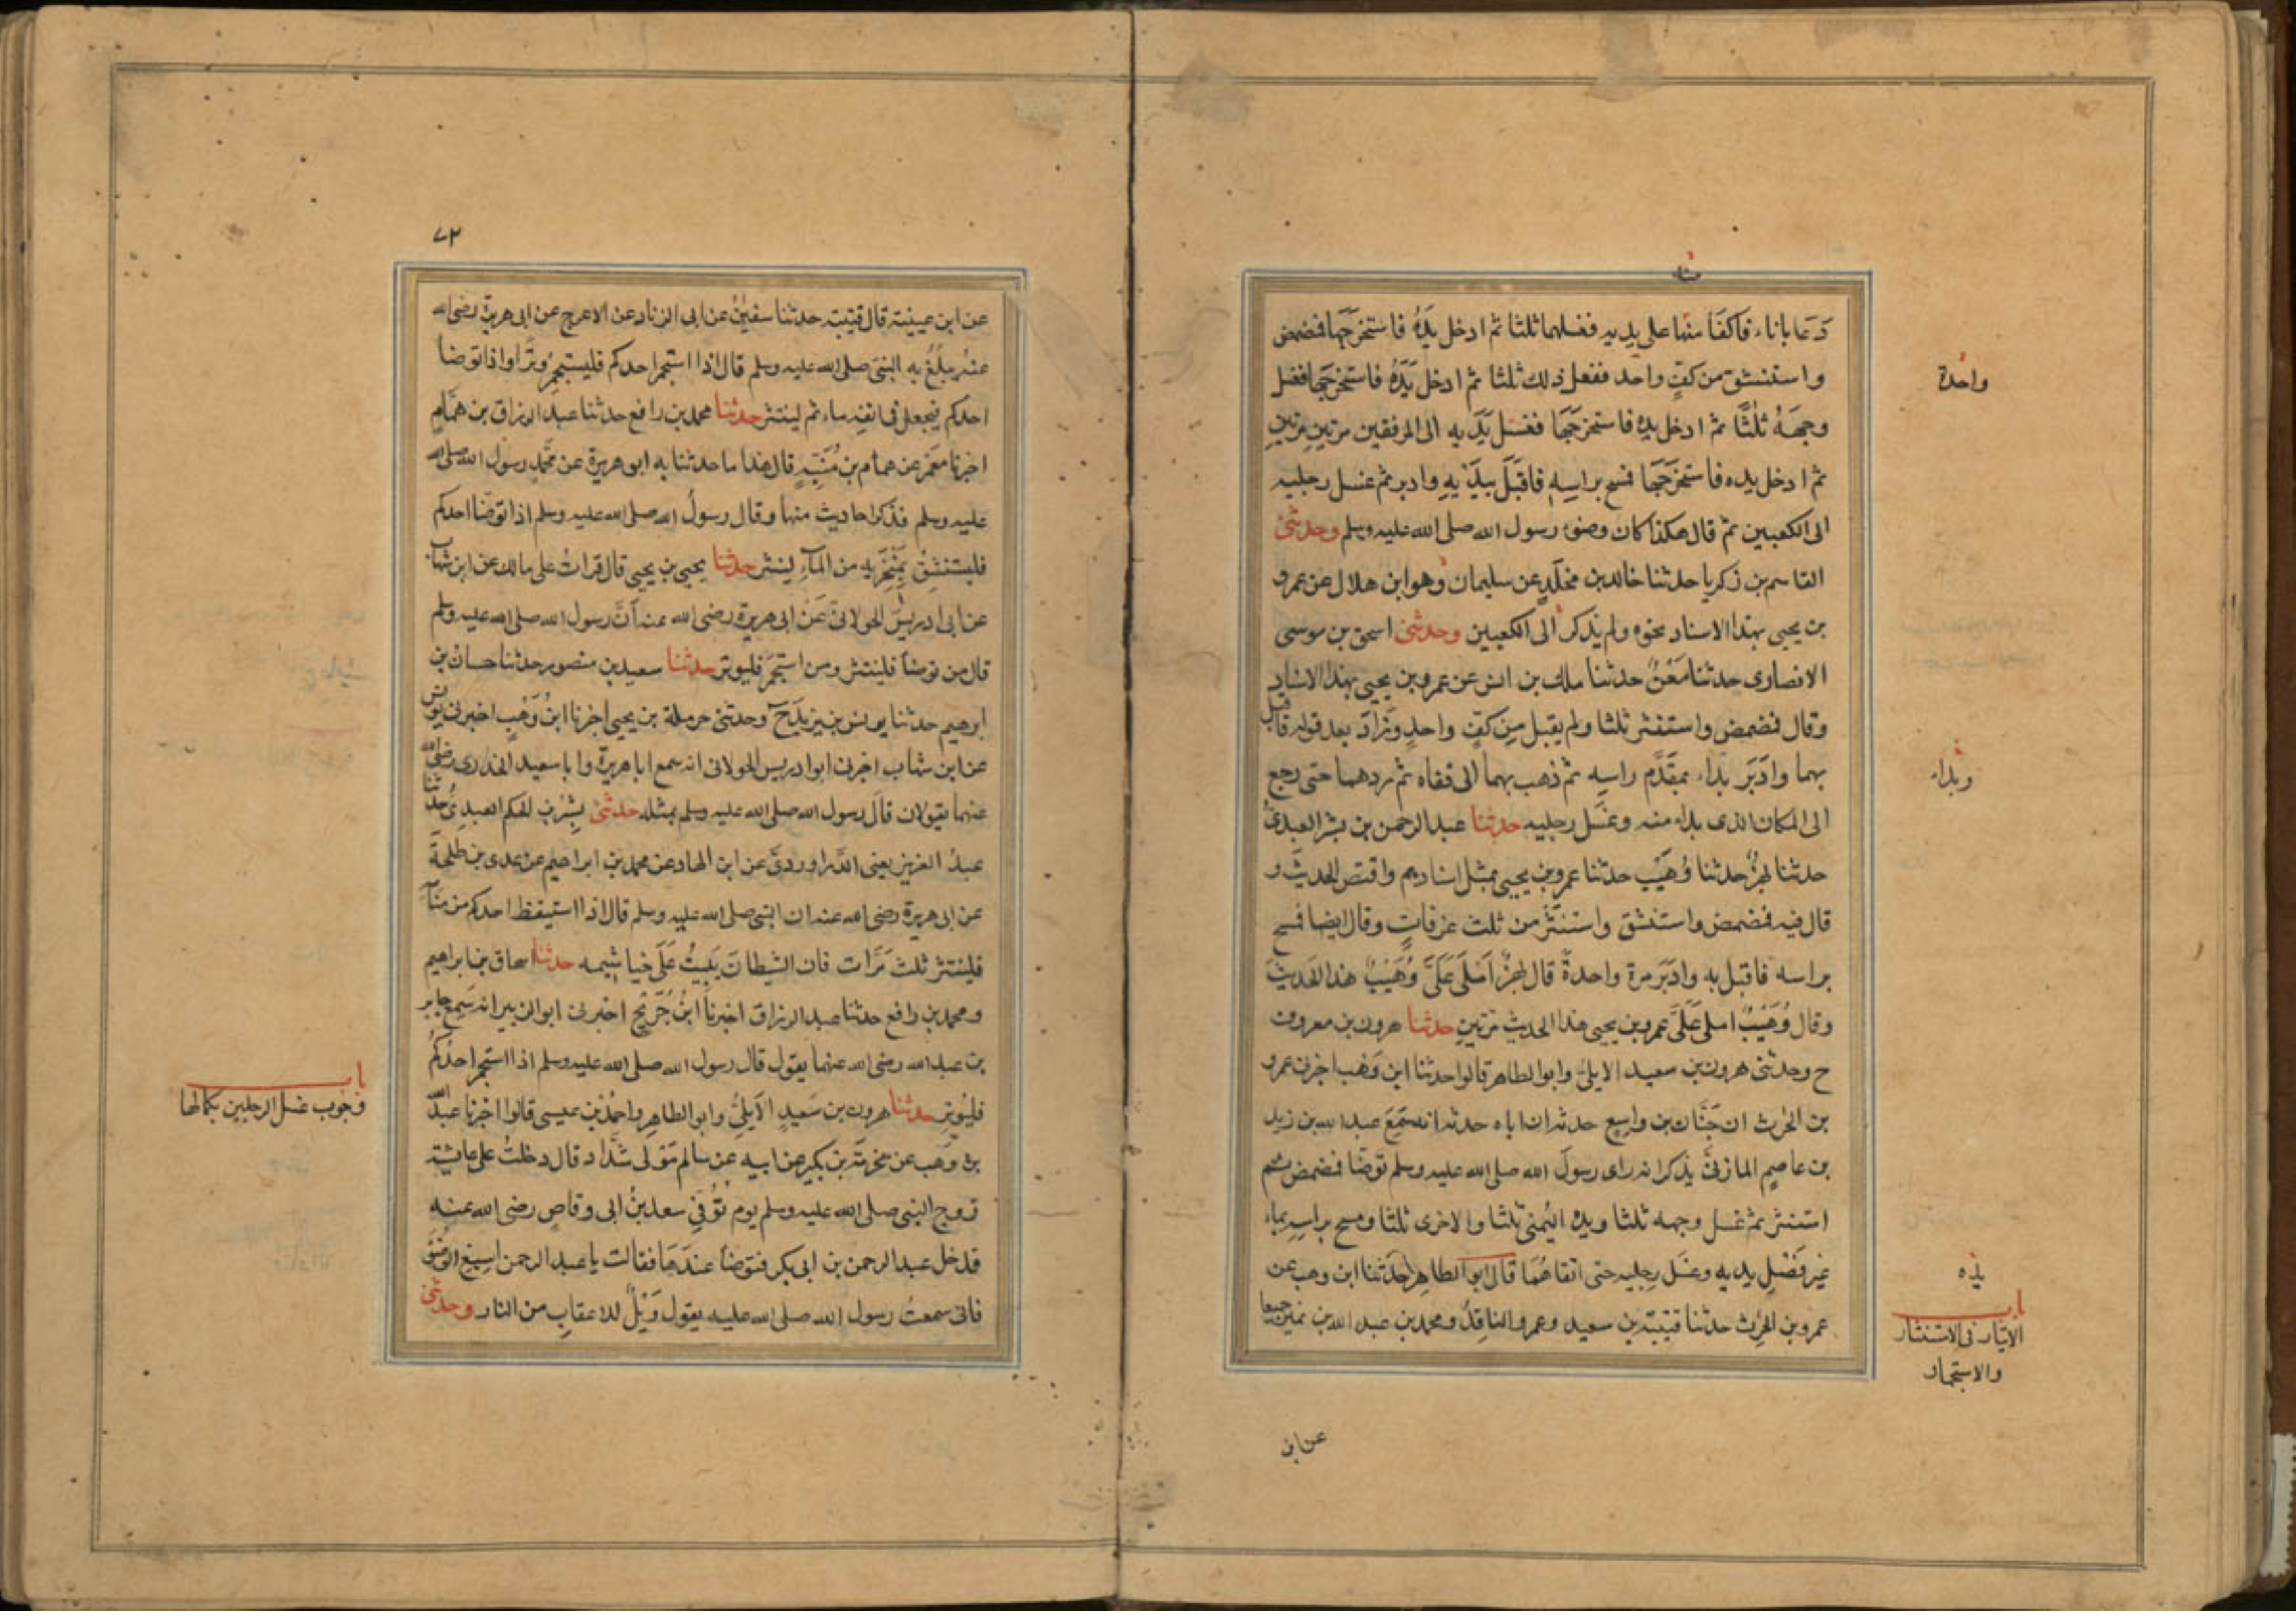 دَعَا باناء فَاكفَا منها على يديه فغسلهما ثلثا ثم ادخل يَدَهُ فاستخرَجَها فمضمض
واستنشق من كفٍّ واحد ففعل ذلك ثلثا ثم ادخل يَدَهُ فاستخرَجَها فغسل
واحدة
وجهَهُ ثلثًا ثم ادخل يده فاستخرَجَها فغسل يَدَيه الى المرفقين مرتين مرتين
ثم ادخل يده فاستخرَجَها فمسح براسِهِ فاقبَلَ بيدَيهِ وادبر ثم غسل رجليه
الى الكعبين ثم قال هكذا كان وضوء رسول الله صلى الله عليه وسلم وحدثنى
القاسم بن زكريا حدثنا خالد بن مخلَدٍ عن سليمان وهو ابن هلال عن عمرو
بن يحيى بهذا الاسناد نحوه ولم يذكر الى الكعبين وحدثنى اسحق بن موسى
الانصارى حدثنا مَعْنٌ حدثنا ملك بن انس عن عمرو بن يحيى بهذا الاسناد
وقال فمضمض واستنثر ثلثا ولم يقبل مِن كفّ واحدٍ وزَادَ بعد قوله فاقبل
بهما وادَبَرَ بداء بمقدَّم راسِه ثم ذهب بهما الى قفاه ثم ردهما حتى رجع
وبداء
الى المكان الذى بداء منه وغسَل رجليه حدثنا عبد الرحمن بن بشر العبدىُّ
حدثنا بهزٌ حدثنا وُهَيْب حدثنا عمرو بن يحيى بمثل اسنادهم واقتص الحديث و
قال فيه فمضمض واستنشق واستنثَرَ من ثلث غرفاتٍ وقال ايضا فمسح
براسه فاقبل به وادبَرَ مرة واحدةً قال بهزٌ اَملَى عَلَىَّ وُهَيْبٌ هذا الحديثَ
وقال وُهَيْبٌ املى عَلَىَّ عمرو بن يحيى هذا الحديث مرتينِ حدثنا هرون بن معروف
ح وحدثنى هرون بن سعيد الايلىُّ وابو الطاهر قالوا حدثنا ابن وَهْب اخبرنى عمرو
بن الحرث ان حَبَّان بن واسِعٍ حدثه ان اباه حدثه انه سَمِعَ عبد الله بن زيد
بن عاصِمٍ المازنىَّ يذكر انه راى رسولَ الله صلى الله عليه وسلم توضّا فمضمض ثم
استنثر ثم غسل وجهه ثلثا ويده اليُمنى ثلثا والاخرى ثلثا ومسح براسِهِ بماء
غيرِ فَضْلِ يديه وغسَل رجليه حتى انقاهُمَا قال ابو الطاهِر حَدَّثنا ابن وهب عن
يده
عمرو بن الحرث حدثنا قتيبَة بن سعيد وعمرو الناقِدُ ومحمد بن عبد الله بن نمير جميعا
باب
الايتار فى الاستنثار
والاستجمار
عن ابن
٧٢
عن ابن عيينة قال قتيبة حدثنا سفينُ عن ابى الزناد عن الاعرج عن ابى هريرة رضى الله
عنه يبلُغُ به النبىَّ صلى الله عليه وسلم قال اذا استجمر احدكم فليستجمِرْ وترًا واذا توضا
احدكم فيجعل فى انفِه ماء ثم لينتثر حدثنا محمد بن رافع حدثنا عبد الرزاق بن همّامٍ
اخبرنا معمَرٌ عن همام بن مُنَبِّهٍ قال هذا ما حدثنا به ابو هريرة عن محمّدٍ رسول الله صلى الله
عليه وسلم فذكر احاديث منها وقال رسولُ الله صلى الله عليه وسلم اذا توضّا احدكم
فليستنشِقْ بِمَنْخِرَيهِ من الماءِ لينتثر حدثنا يحيى بن يحيى قال قرات على مالك عن ابن شهاب
عن ابى ادريسَ الخولانىِّ عَن ابى هريرة رضى الله عنه أنَّ رسول الله صلى الله عليه وسلم
قال من توضأ فلينتثر ومن استجمَرَ فليوتر حدثنا سعيد بن منصور حدثنا حسان بن
ابرهيم حدثنا يونس بن يزيدَ ح وحدثنى حرملة بن يحيى اخبرنا ابنُ وَهْبٍ اخبرنى يونس
عن ابن شهاب اخبرنى ابو ادريس الخولانى انه سمع ابا هريرة وابا سعيد الخدرى رضى الله
عنهما يقولان قالَ رسول الله صلى الله عليه وسلم بمثله حدثنى بِشْرُ بن الحكم العبدِىُّ حدثنا
عبدُ العزيز يعنى الدَّراوردىَّ عن ابن الهاد عن محمد بن ابراهيم عن عيسى بن طلحةَ
عن ابى هريرة رضى الله عنه ان النبى صلى الله عليه وسلم قال اذا استيقظ احدكم من منامه
فلينتثر ثلثَ مَرَّات فان الشيطانَ يَبيتُ عَلَى خياشيمه حدثنا اسحاق بن ابراهيم
ومحمد بن رافع حدثنا عبد الرزاق اخبرنا ابنُ جُرَيْجٍ اخبرنى ابو الزبير انه سَمِعَ جابر
بن عبد الله رضى الله عنهما يقول قال رسول الله صلى الله عليه وسلم اذا استجمر احدُكُم
فليُوتِر حدثنا هرون بن سَعيدٍ الاَيلِىُّ وابو الطاهِرِ واحمدُ بن عيسى قالوا اخبرنا عبدُ الله
باب
وجوب غسل الرجلين بكمالها
بن وَهب عن مخرمَة بن بكير عن ابيه عن سالم مَولى شدّاد قال دخلتُ على عايشة
زوج النبى صلى الله عليه وسلم يوم تُوُفِّىَ سعد بنُ ابى وقاصٍ رضى الله عنه
فدخل عبد الرحمن بن ابى بكر فتوضأ عندَهَا فقالت يا عبد الرحمن اسبِغِ الوُضُوءَ
فانى سمعتُ رسول الله صلى الله عليه يقول وَيْلٌ للاعقابِ من النار وحدثنى